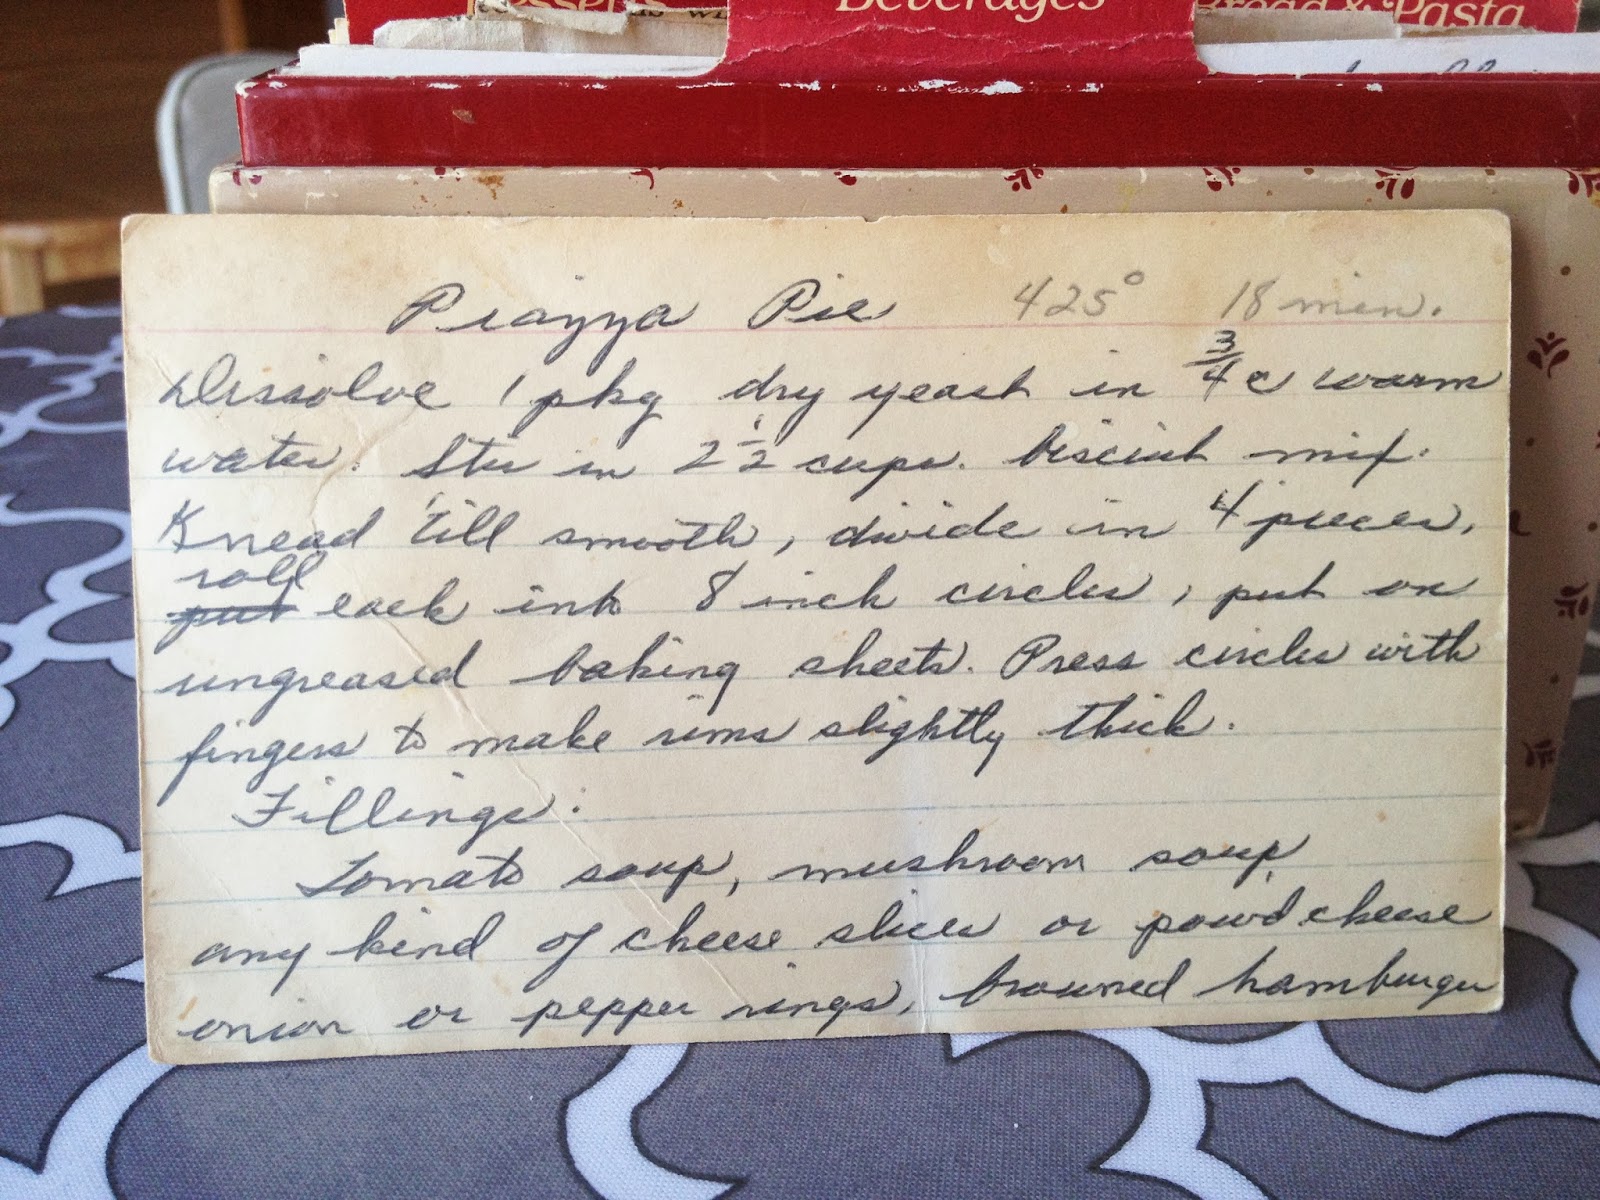 Desserts Beverages Bread & Pasta
Piazza Pie 425° 18 min.
Dissolve 1 pkg dry yeast in 3/4 c warm
water. Stir in 2 1/2 cups. biscuit mix.
Knead 'till smooth, divide in 4 pieces,
roll
put each into 8 inch circles, put on
ungreased baking sheets. Press circles with
fingers to make rims slightly thick.
Fillings:
Tomato soup, mushroom soup,
any kind of cheese slices or powd cheese
onion or pepper rings, browned hamburger